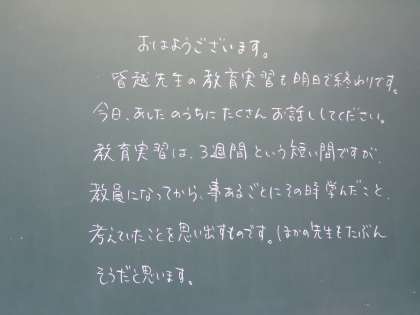 おはようございます。
皆越先生の教育実習も明日で終わりです。
今日、あしたのうちにたくさんお話ししてください。
教育実習は、3週間という短い間ですが、
教員になってから、事あるごとにその時学んだこと、
考えていたことを思い出すものです。ほかの先生もたぶん
そうだと思います。